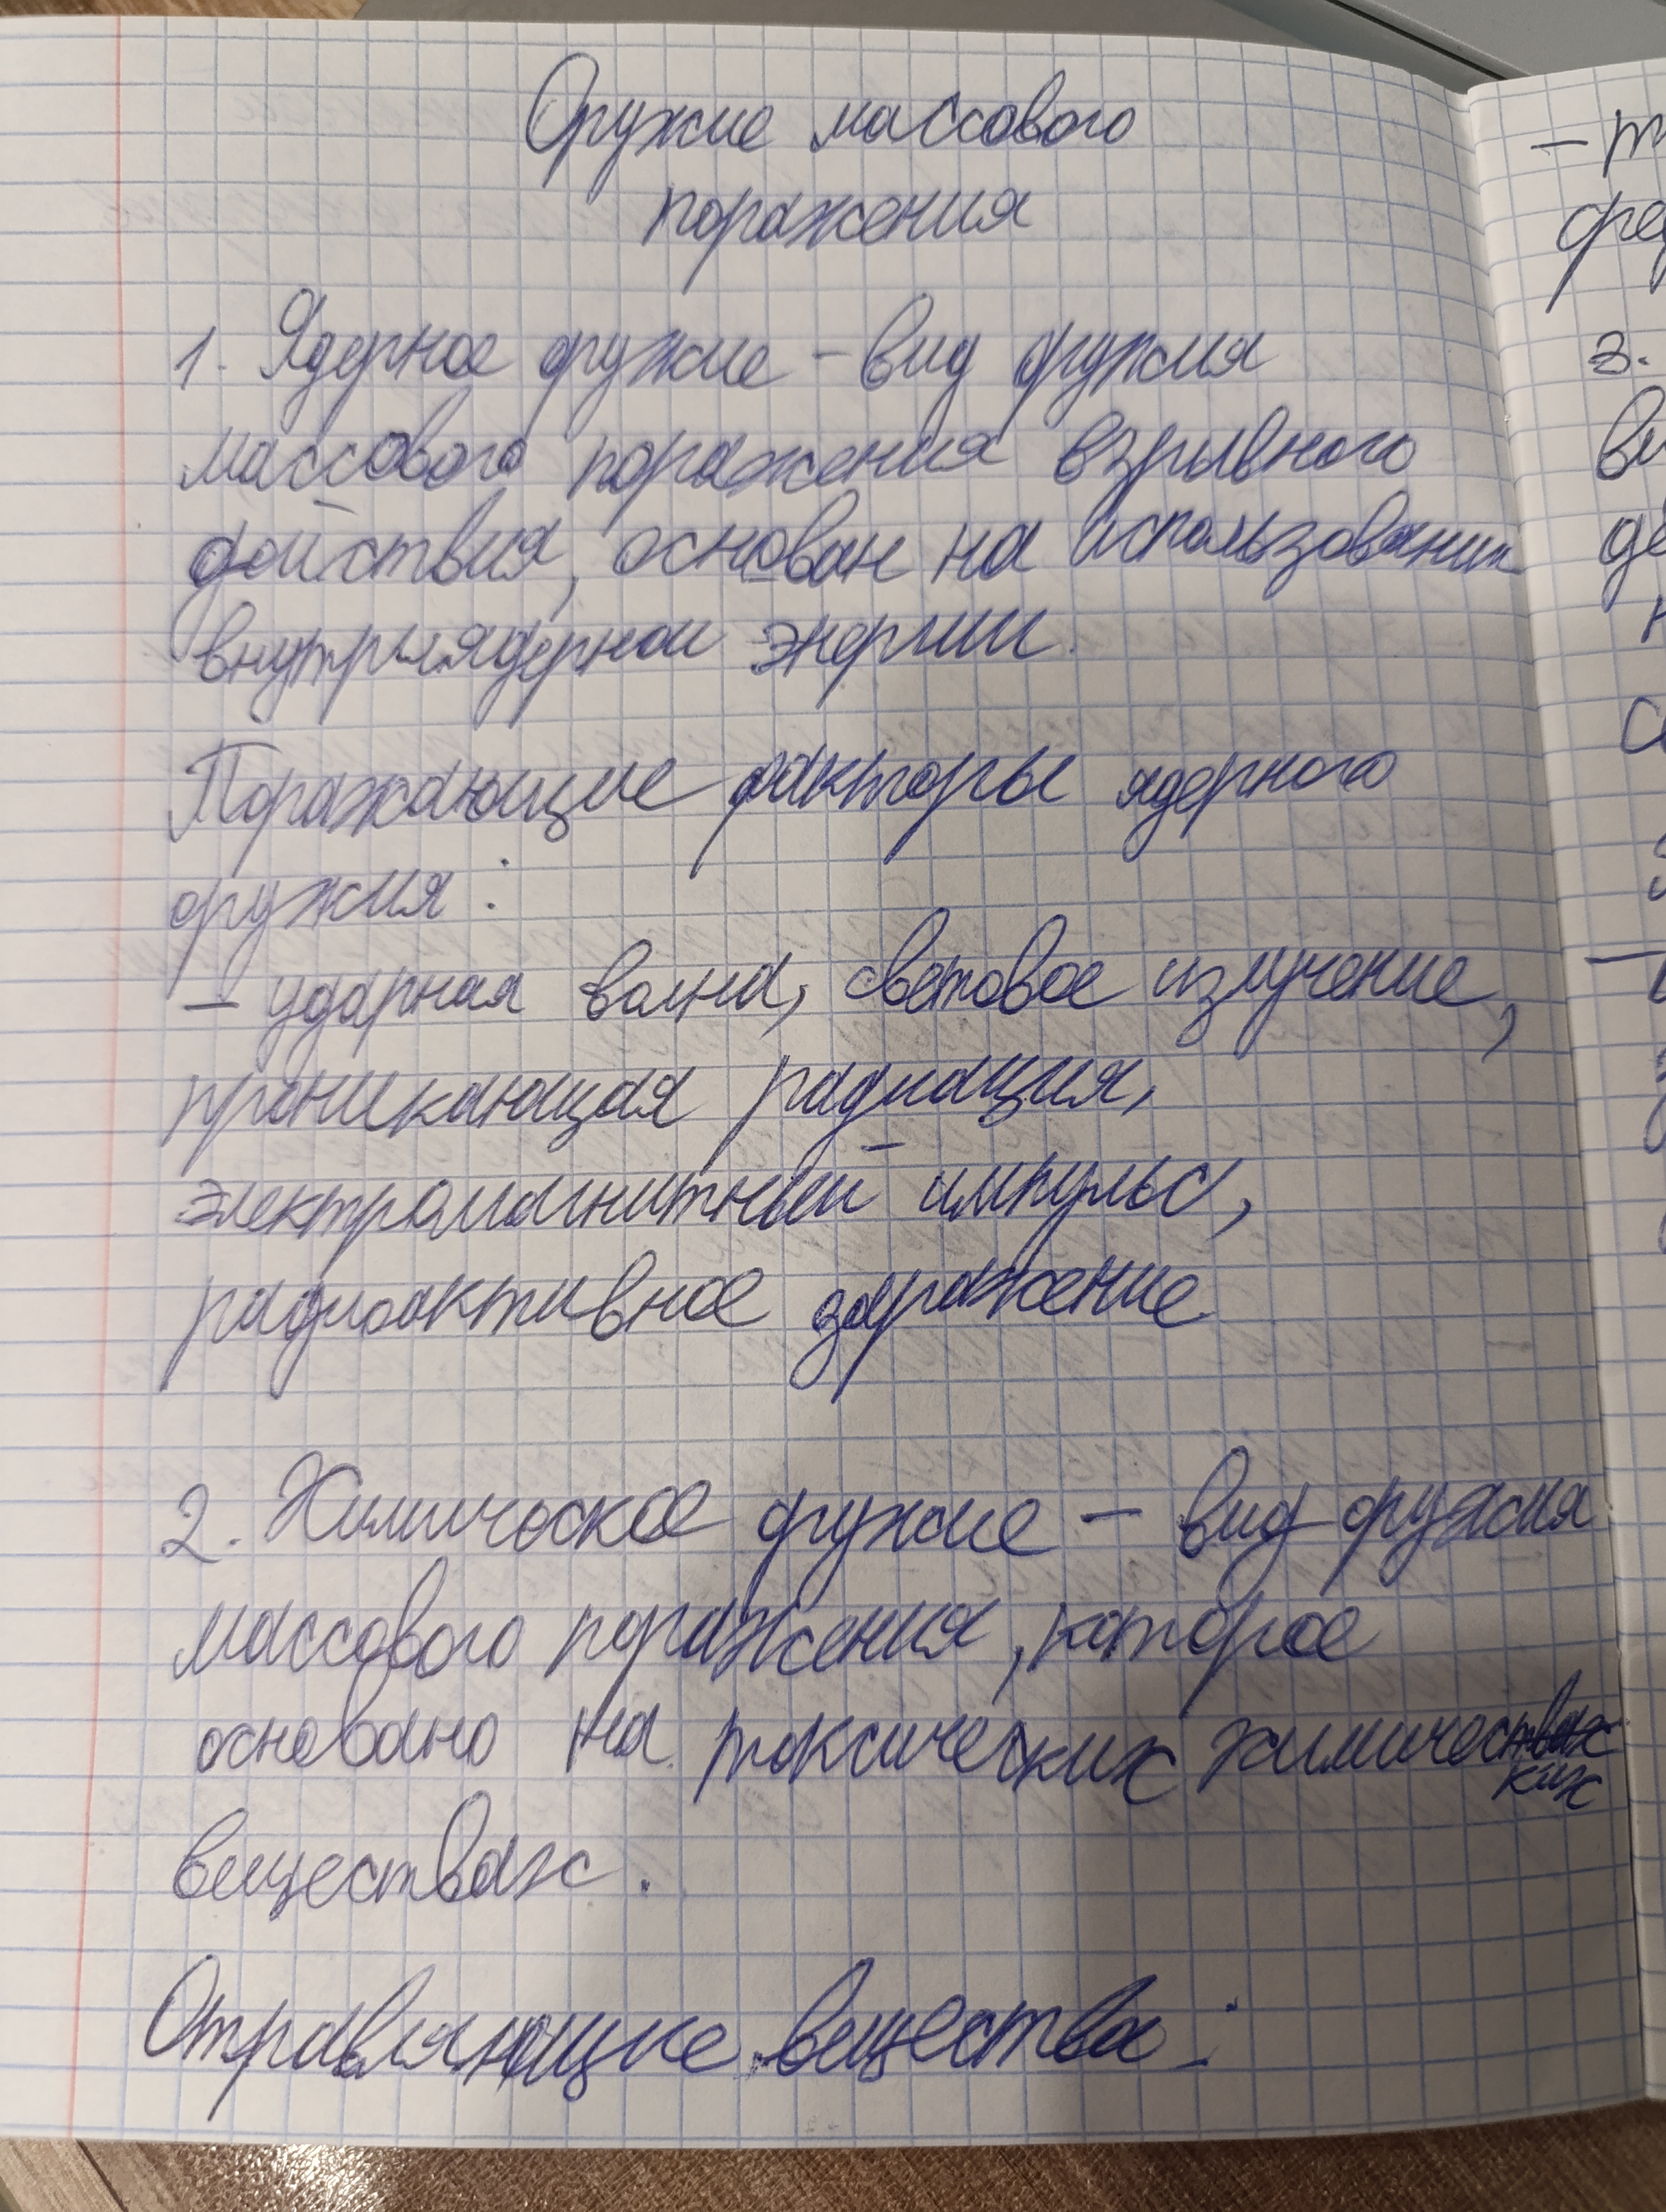 Оружие массового
поражения
1. Ядерное оружие - вид оружия
массового поражения взрывного
действия, основан на использовании
внутриядерной энергии.
Поражающие факторы ядерного
оружия:
- ударная волна, световое излучение,
проникающая радиация,
электромагнитный импульс,
радиоактивное заражение.
2. Химическое оружие - вид оружия
массового поражения, которое
основано на токсических химических
веществах.
Отравляющие вещества:
- т
3.